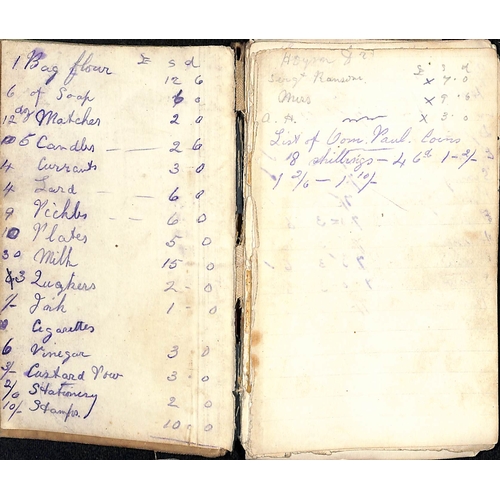 £ s d
1 Bag flour 12 6
6 of Soap 6 0
12 dz Matches 2 0
5 Candles — — 2 6
4 Currants 3 0
4 Lard — — 6 0
9 Pickles — 6 0
10 Plates 5 0
30 Milk 15 0
3 Quakers 2 - 0
1 - 0
Cigarettes
6 Vinegar 3 0
3/- Custard Pow 3 0
2/6 Stationery
10/- Stamps 2 0
10 9 0
£ s d
Serg^t Ransom x 7 . 0
x 9 . 6
x 3 . 0
List of Oom. Paul. Coins
18 shillings — 4 6^d 1 - 2/-
1 2/6 — 1. 10/-